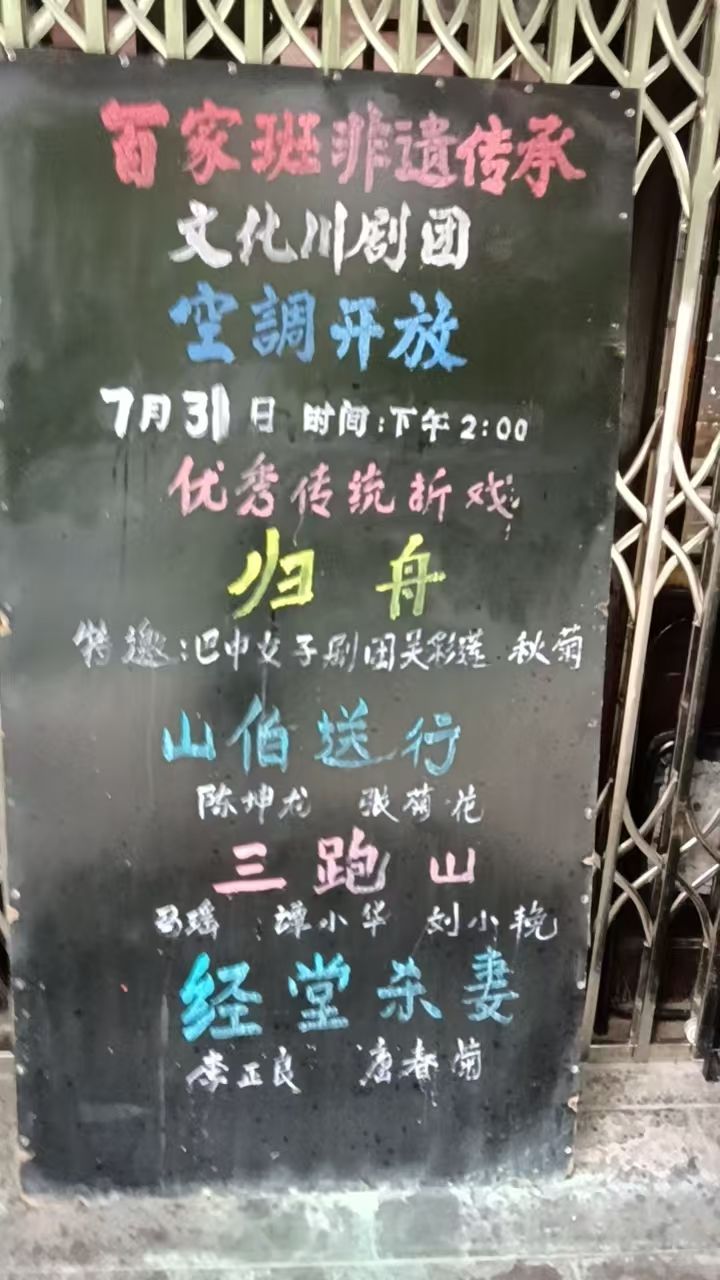 百家班非遗传承
文化川剧团
空調开放
7月31日 时间:下午2:00
优秀传统折戏:
归舟
特邀:巴中女子剧团吴彩莲 秋菊
山伯送行
陈坤龙 张菊花
三跑山
马瑶 谭小华 刘小艳
经堂杀妻
李正良 唐春菊